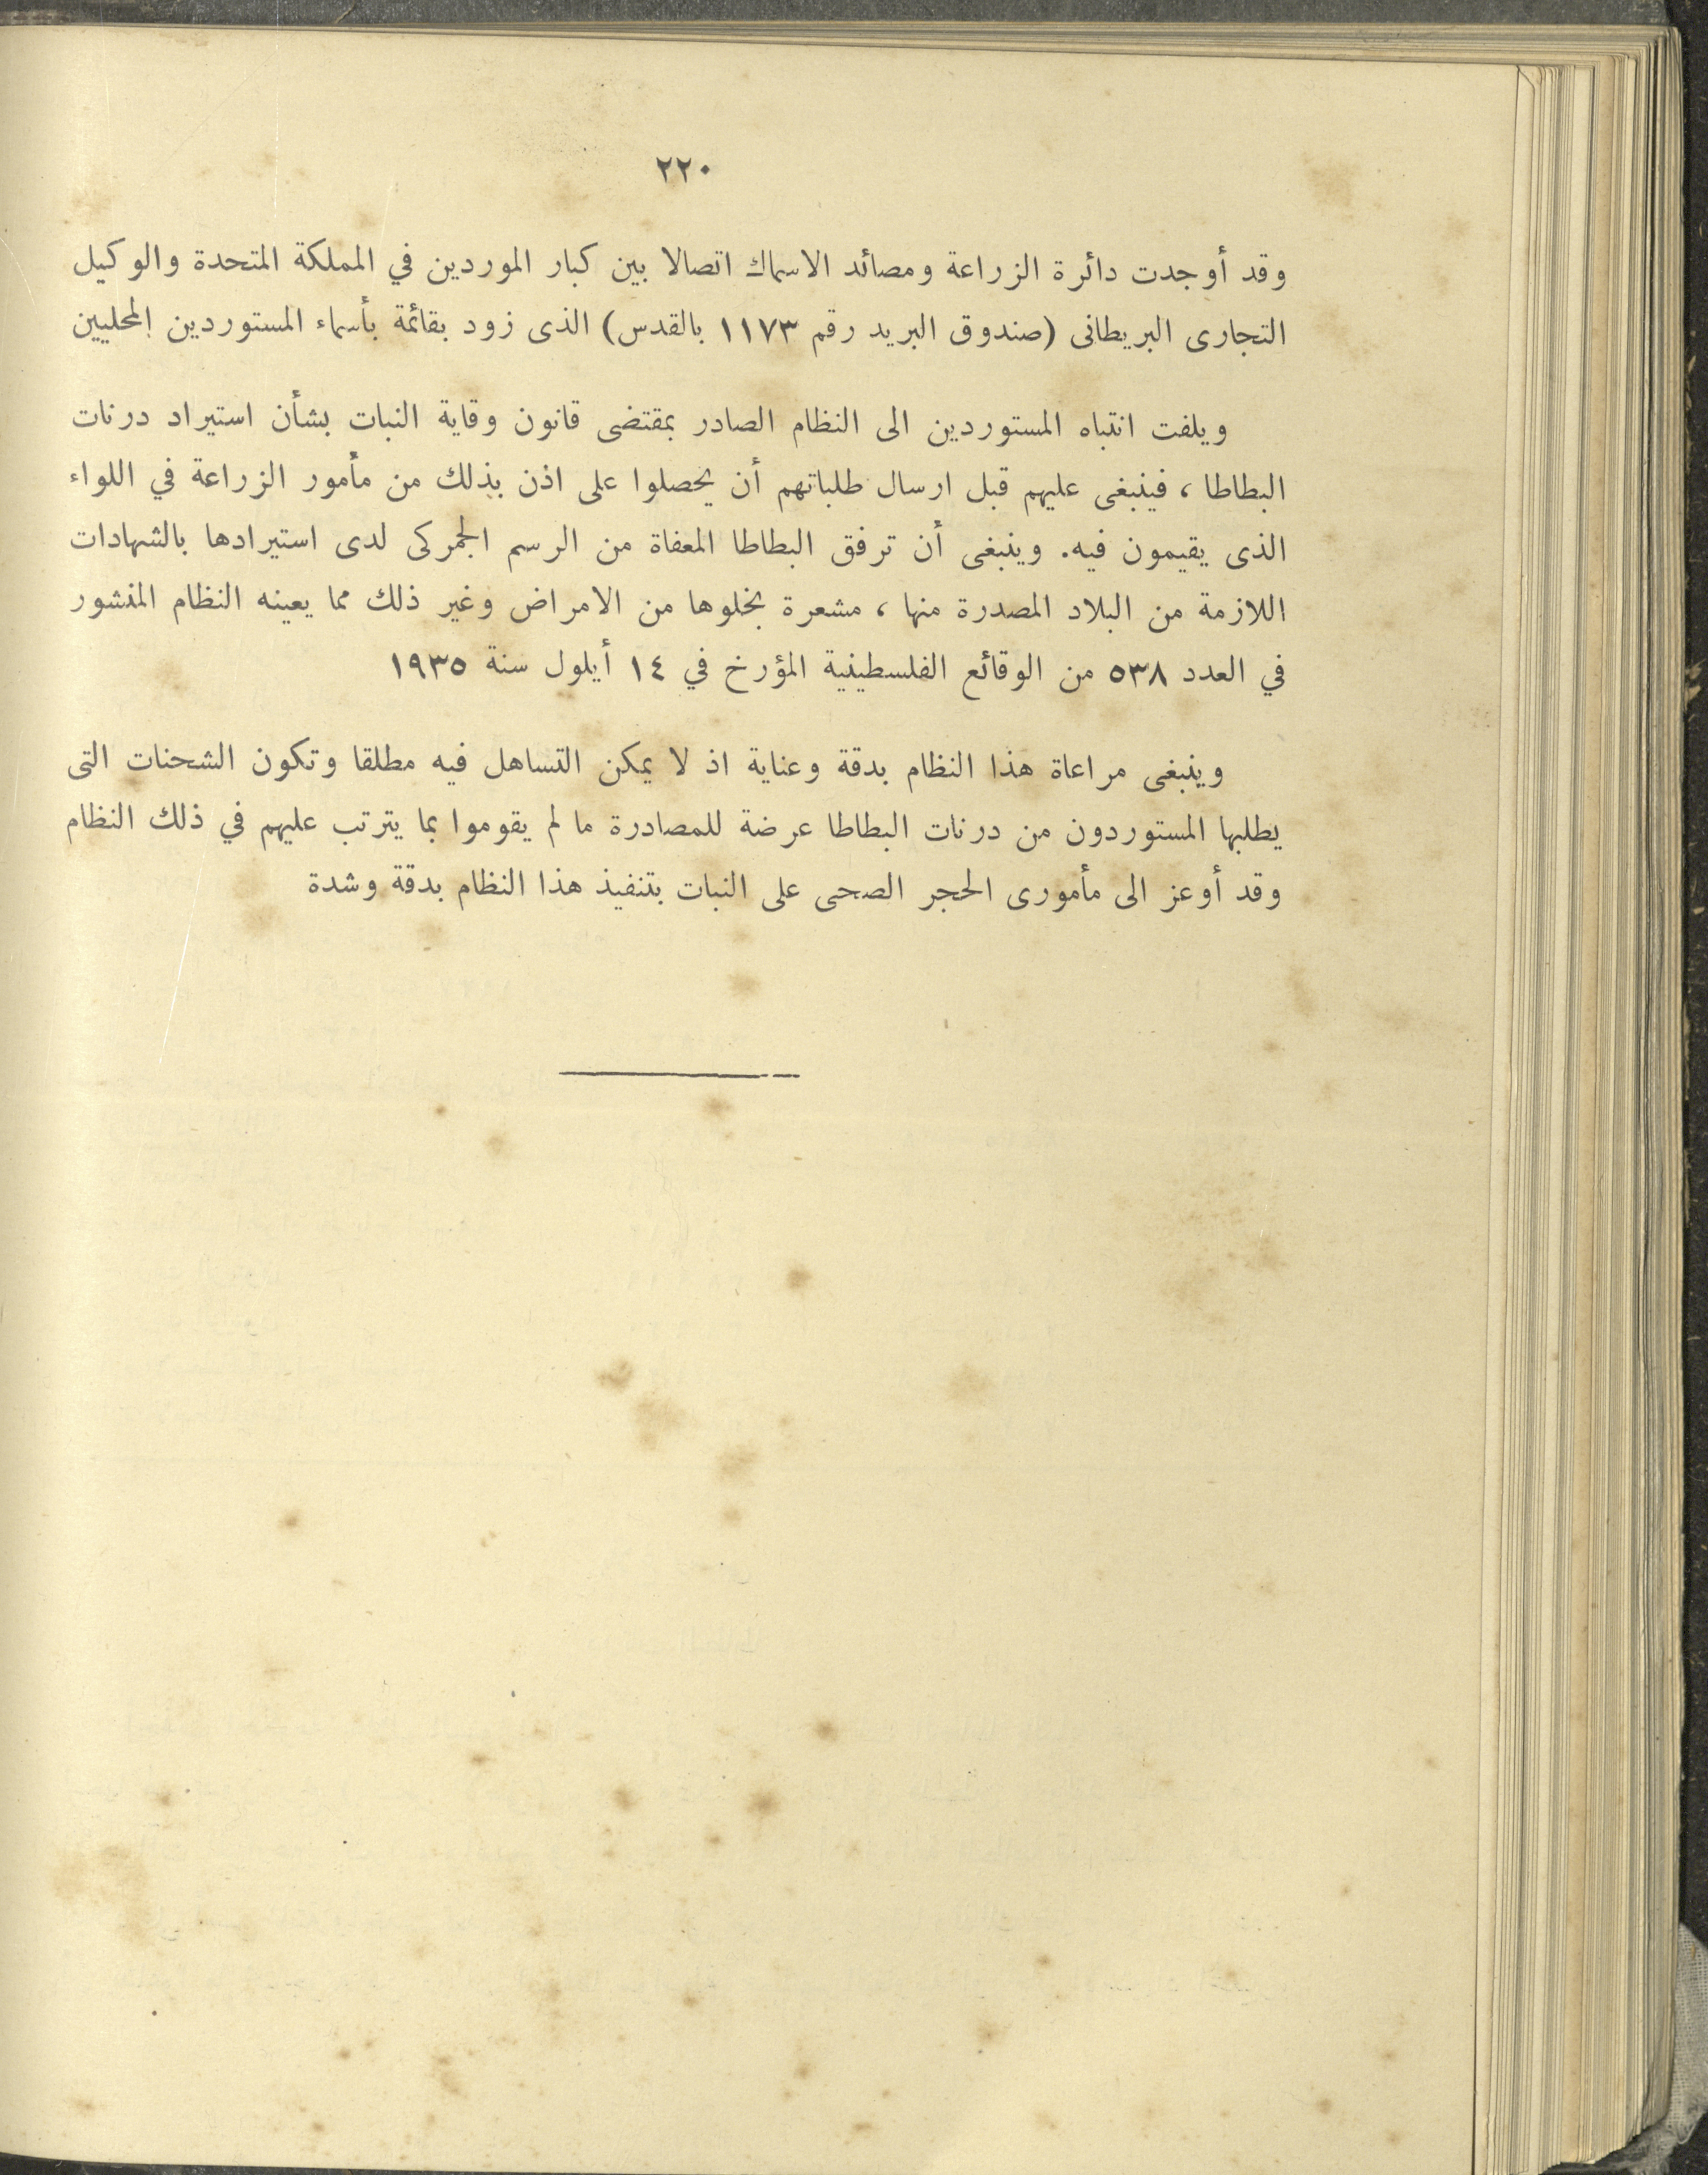 ٢٢٠
وقد أوجدت دائرة الزراعة ومصائد الاسماك اتصالا بين كبار الموردين في المملكة المتحدة والوكيل
التجارى البريطانى (صندوق البريد رقم ١١٧٣ بالقدس) الذى زود بقائمة بأسماء المستوردين المحليين
ويلفت انتباه المستوردين الى النظام الصادر بمقتضى قانون وقاية النبات بشأن استيراد درنات
البطاطا، فينبغى عليهم قبل ارسال طلباتهم أن يحصلوا على اذن بذلك من مأمور الزراعة في اللواء
الذى يقيمون فيه. وينبغى أن ترفق البطاطا المعفاة من الرسم الجمركى لدى استيرادها بالشهادات
اللازمة من البلاد المصدرة منها، مشعرة بخلوها من الامراض وغير ذلك مما يعينه النظام المنشور
في العدد ٥٣٨ من الوقائع الفلسطينية المؤرخ في ١٤ أيلول سنة ١٩٣٥
وينبغى مراعاة هذا النظام بدقة وعناية اذ لا يمكن التساهل فيه مطلقا وتكون الشحنات التى
يطلبها المستوردون من درنات البطاطا عرضة للمصادرة ما لم يقوموا بما يترتب عليهم في ذلك النظام
وقد أوعز الى مأمورى الحجر الصحى على النبات بتنفيذ هذا النظام بدقة وشدة